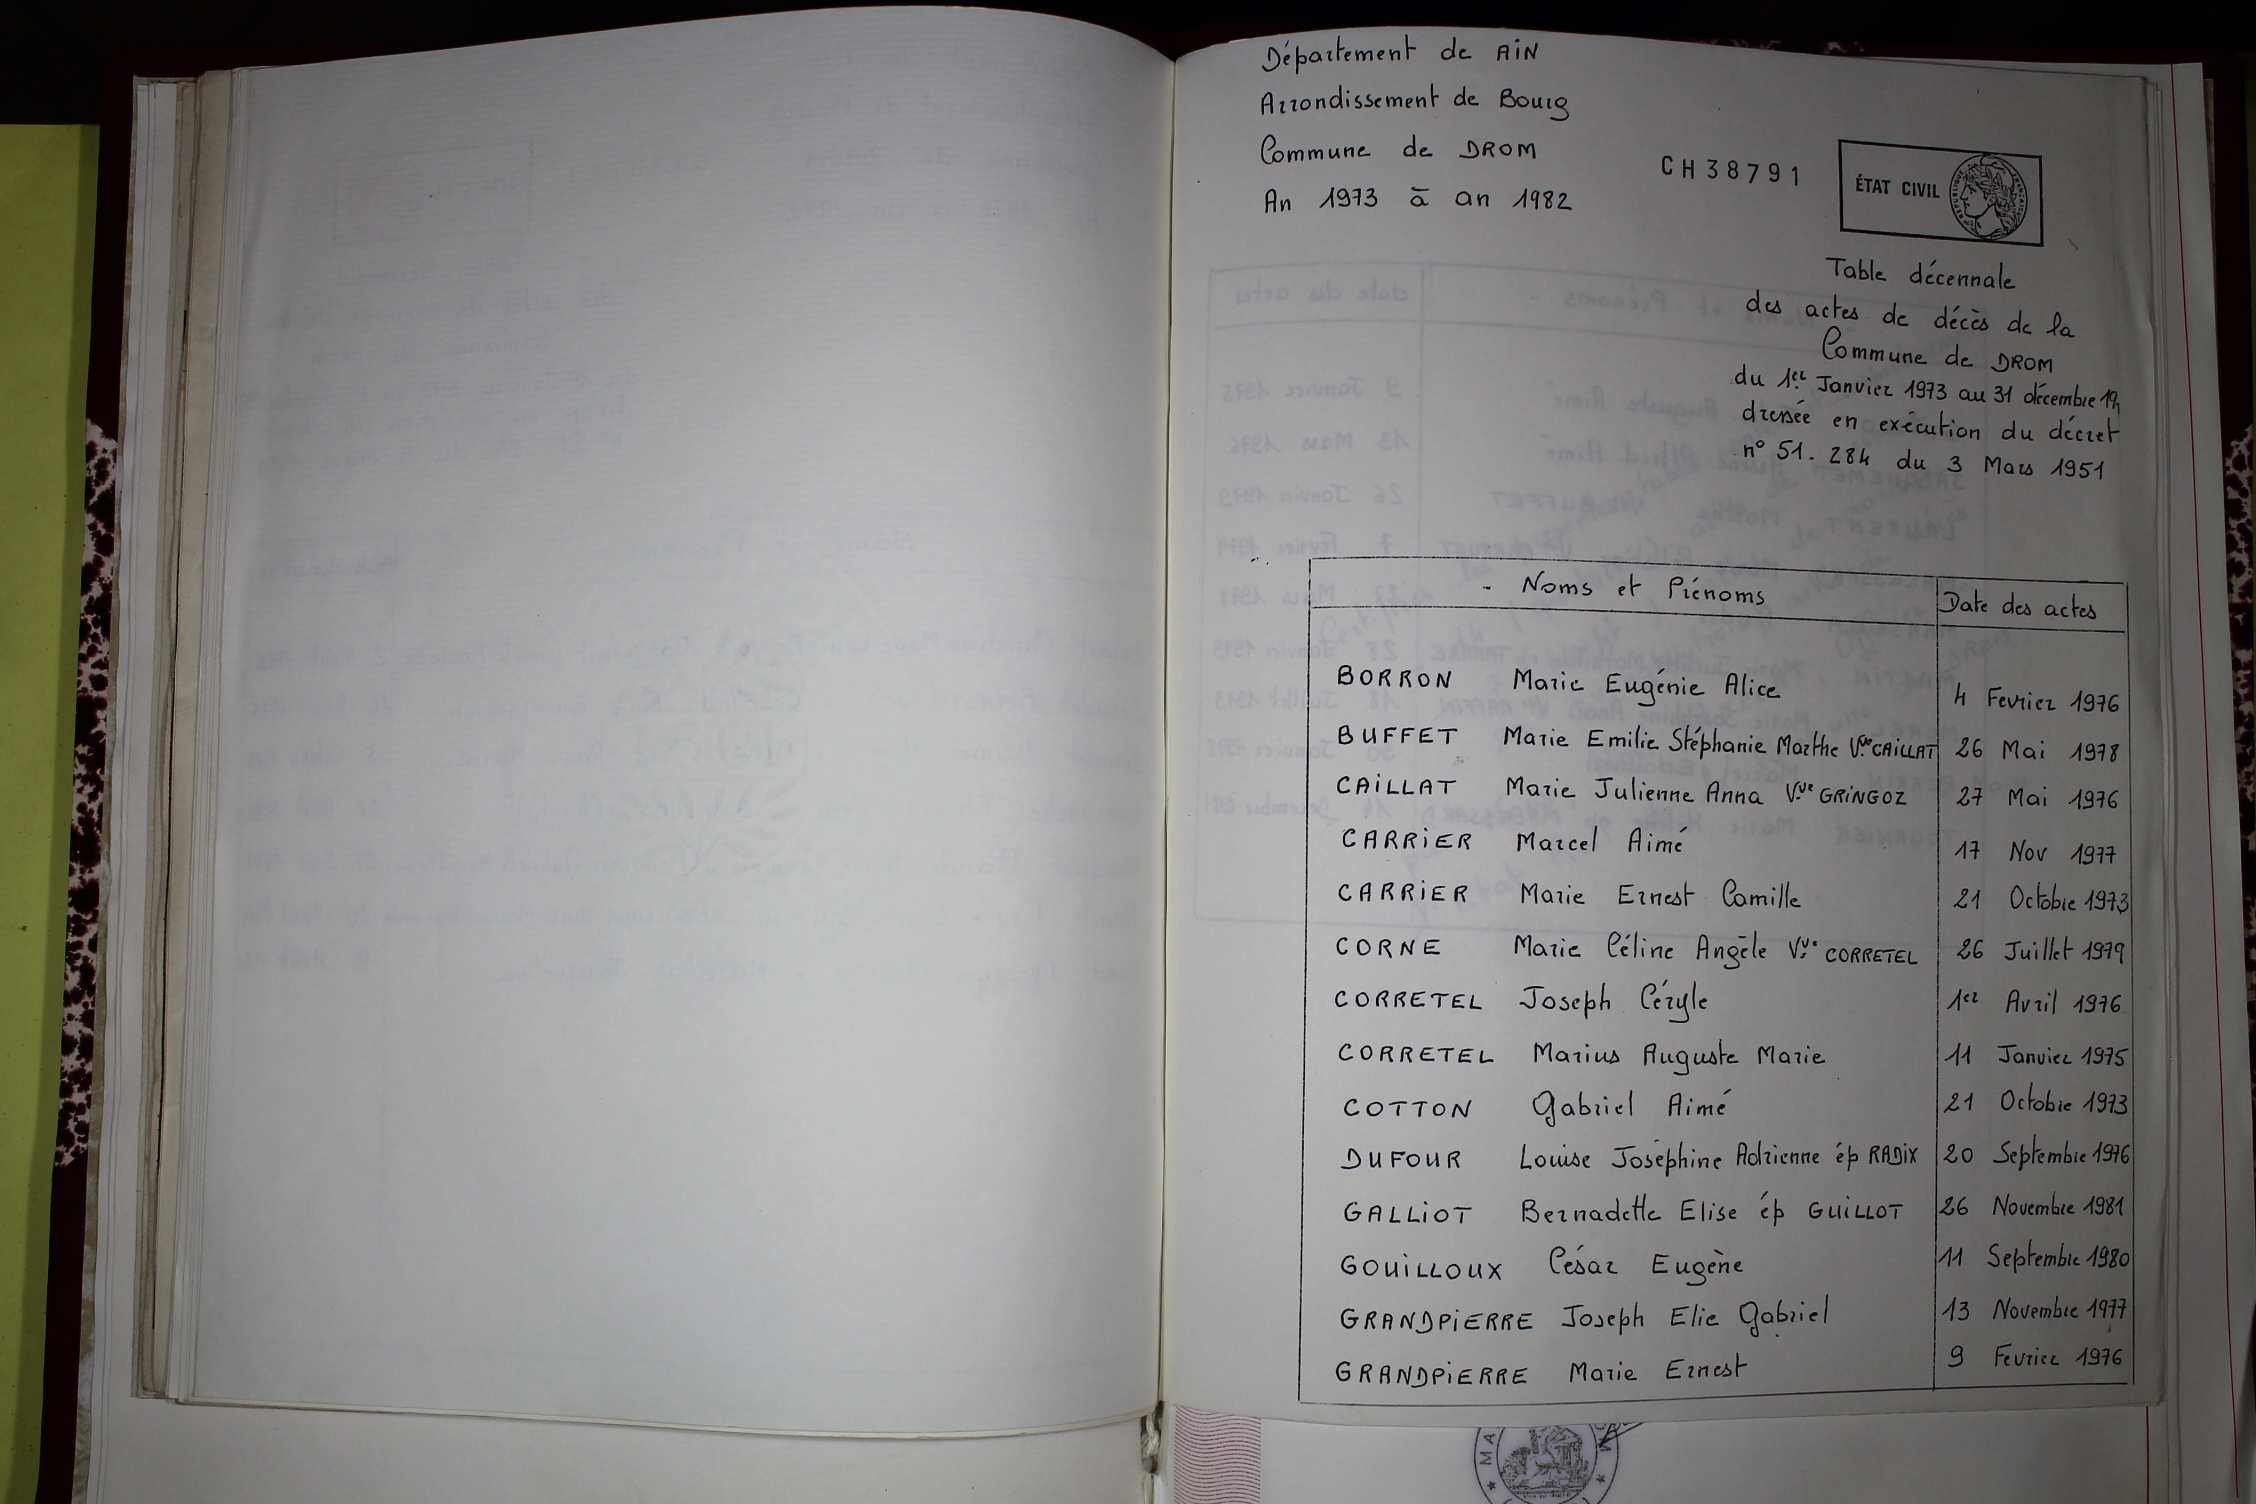 Département de AIN
Arrondissement de Bourg
Commune de DROM
An 1973 à an 1982
CH38791
ÉTAT CIVIL
Table décennale
des actes de décès de la
Commune de DROM
du 1er Janvier 1973 au 31 décembre 19
dressée en exécution du décret
n° 51.284 du 3 Mars 1951
- Noms et Prénoms Date des actes
BORRON Marie Eugénie Alice 4 Fevrier 1976
BUFFET Marie Emilie Stéphanie Marthe Vve CAILLAT 26 Mai 1978
CAILLAT Marie Julienne Anna Vve GRINGOZ 27 Mai 1976
CARRIER Marcel Aimé 17 Nov 1977
CARRIER Marie Ernest Camille 21 Octobre 1973
CORNE Marie Céline Angèle Vve CORRETEL 26 Juillet 1979
CORRETEL Joseph Céryle 1er Avril 1976
CORRETEL Marius Auguste Marie 11 Janvier 1975
COTTON Gabriel Aimé 21 Octobre 1973
DUFOUR Louise Joséphine Adrienne ép RADIX 20 Septembre 1976
GALLIOT Bernadette Elise ép GUILLOT 26 Novembre 1981
GOUILLOUX César Eugène 11 Septembre 1980
GRANDPIERRE Joseph Elie Gabriel 13 Novembre 1977
GRANDPIERRE Marie Ernest 9 Fevrier 1976